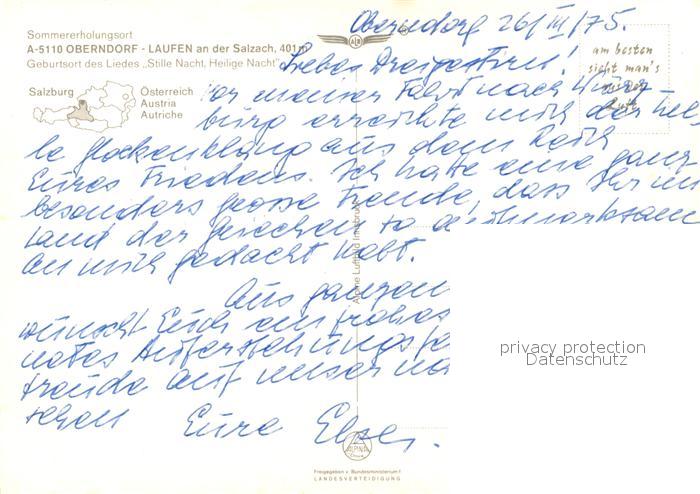 Sommererholungsort
A-5110 OBERNDORF - LAUFEN an der Salzach, 401 m
Geburtsort des Liedes „Stille Nacht, Heilige Nacht"
Salzburg
Österreich
Austria
Autriche
am besten
sieht man's
aus der
Luft
Oberndorf 26/III/75.
Liebes !
Vor meiner Fahrt nach Würz
burg erreichte mich der
le Glockenklang aus dem Reich
Eures Friedens. Ich hatte eine ganz
besonders grosse Freude, dass Ihr im
Land der so aufmerksam
an mich gedacht habt.
Aus ganzen
wünscht Euch ein frohes
Auferstehungsfe
freude auf unser
sehen Eure
Alpine Luftbild Innsbruck
ALPINA
Freigegeben v. Bundesministerium f.
LANDESVERTEIDIGUNG
privacy protection
Datenschutz